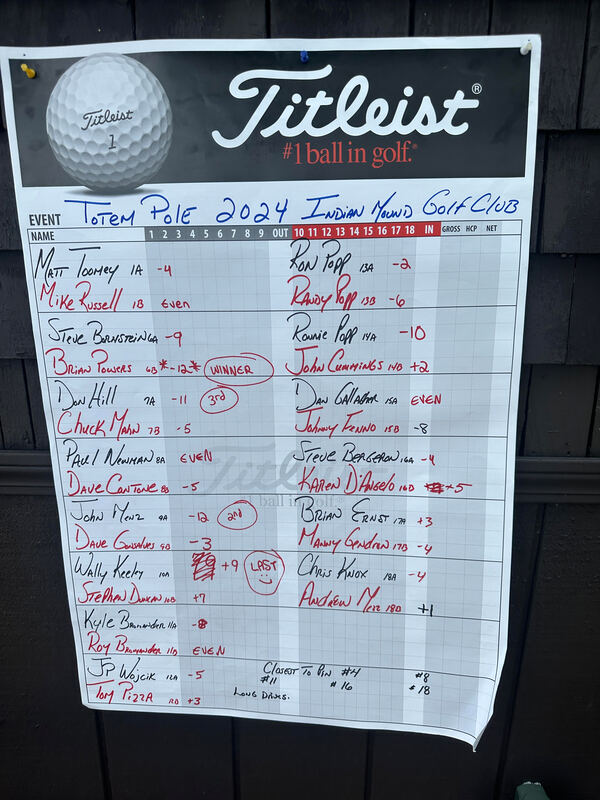 Titleist
1
Titleist®
#1 ball in golf.®
EVENT TOTEM POLE 2024 INDIAN MOUND GOLF CLUB
NAME 1 2 3 4 5 6 7 8 9 OUT 10 11 12 13 14 15 16 17 18 IN GROSS HCP NET
MATT TOOMEY 1A -4
MIKE RUSSELL 1B EVEN
STEVE BORNSTEIN 6A -9
BRIAN POWERS 6B *-12* WINNER
DON HILL 7A -11 3rd
CHUCK MANN 7B -5
PAUL NEWMAN 8A EVEN
DAVE CONTONE 8B -5
JOHN MENZ 9A -12 2nd
DAVE GONSALVES 9B -3
WALLY KEELEY 10A +9 LAST
STEPHEN DUNCAN 10B +7
KYLE 11A -8
ROY 11B EVEN
JP WOJCIK 12A -5
TOM PIZZA +3
RON POPP 13A -2
RANDY POPP 13B -6
RONNIE POPP 14A -10
JOHN CUMMINGS 14B +2
DAN GALLAGHER 15A EVEN
JOHNNY FENNO 15B -8
STEVE BERGERON 16A -4
KAREN DIANGELO 16B +5
BRIAN ERNST 17A +3
MANNY GENDRON 17B -4
CHRIS KNOX 18A -4
ANDREW MENZ 18B +1
CLOSEST TO PIN #4 #8
#11 #16 #18
LONG DRIVES: